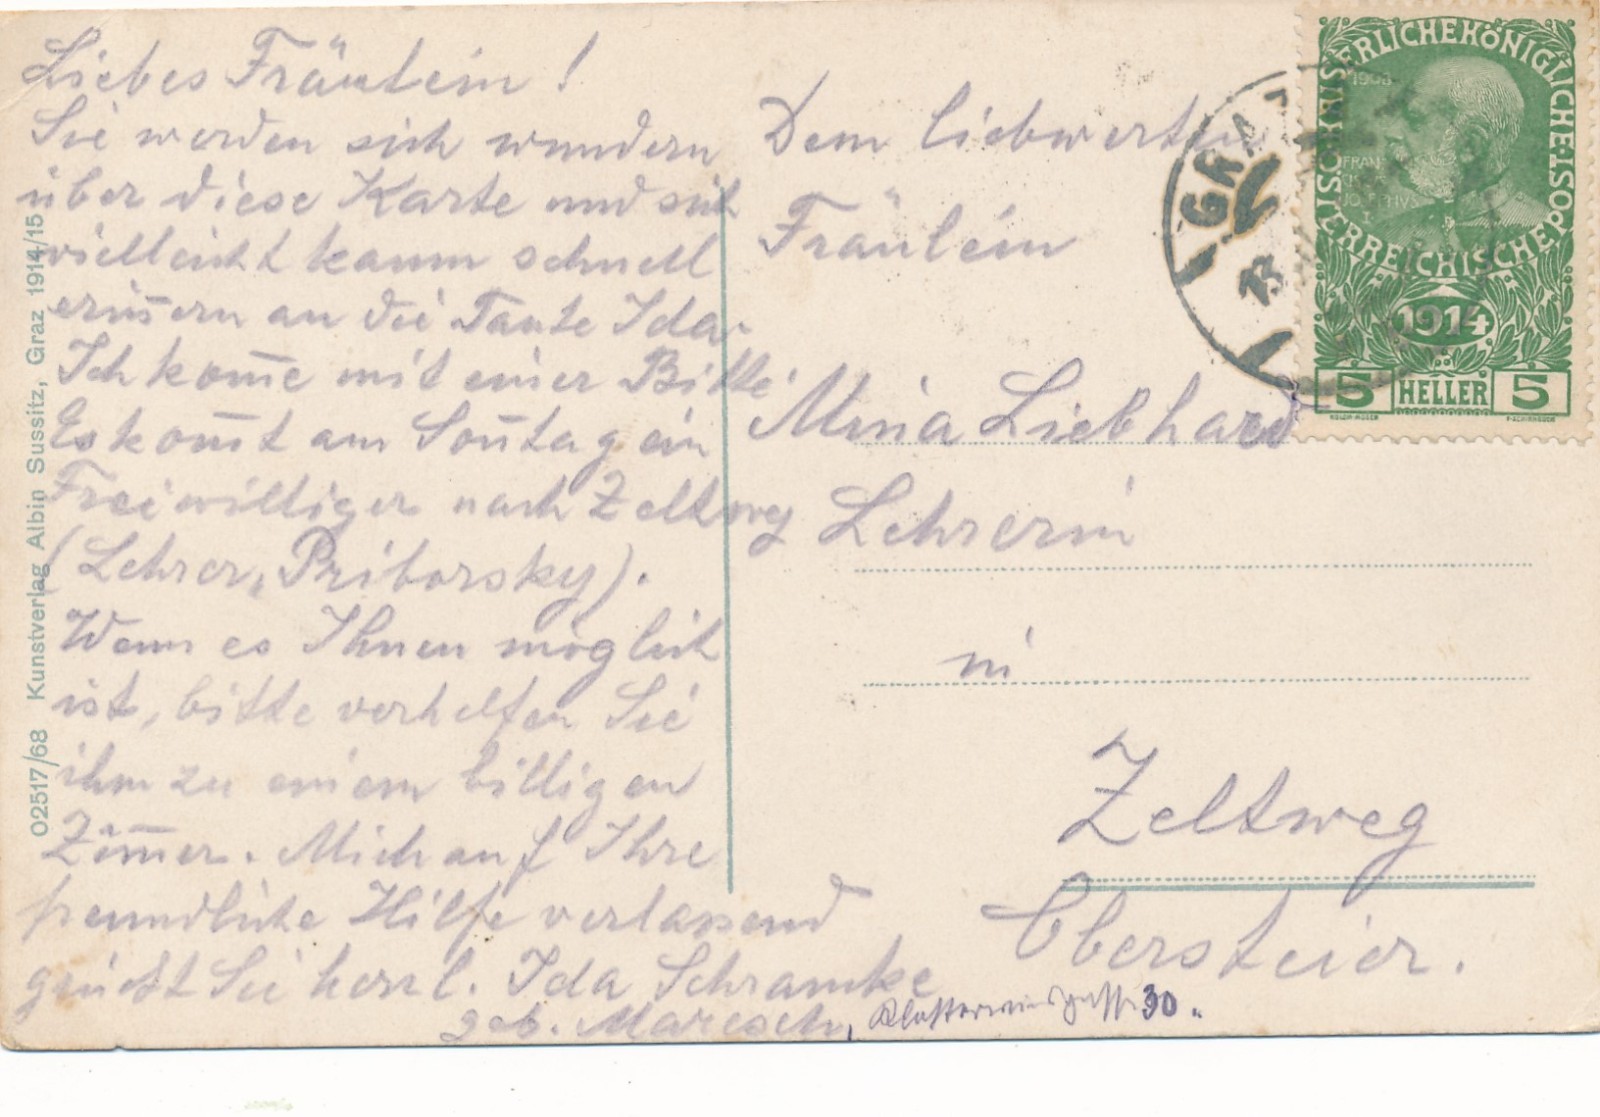 Liebes Fräulein!
Sie werden sich wundern
über diese Karte und sich
vielleicht kaum schnell
erin̄ern an die Tante Ida.
Ich kom̄e mit einer Bitte
Es kom̄t am Son̄tag ein
Freiwilliger nach Zeltweg
(Lehrer, Priborsky).
Wenn es Ihnen möglich
ist, bitte verhelfen Sie
ihm zu einem billigen
Zim̄er. Mich auf Ihre
freundliche Hilfe verlassend
grüßt Sie herzl. Ida Schramke
geb. Maresch, 30.
Dem liebwerten
Fräulein
Mina Liebhard
Lehrerin
in
Zeltweg
Obersteier.
02517/68 Kunstverlag Albin Sussitz, Graz 1914/15
GRAZ
13
KAISERLICHEKÖNIGLICHE
ÖSTERREICHISCHEPOST
1908
1914
5 HELLER 5